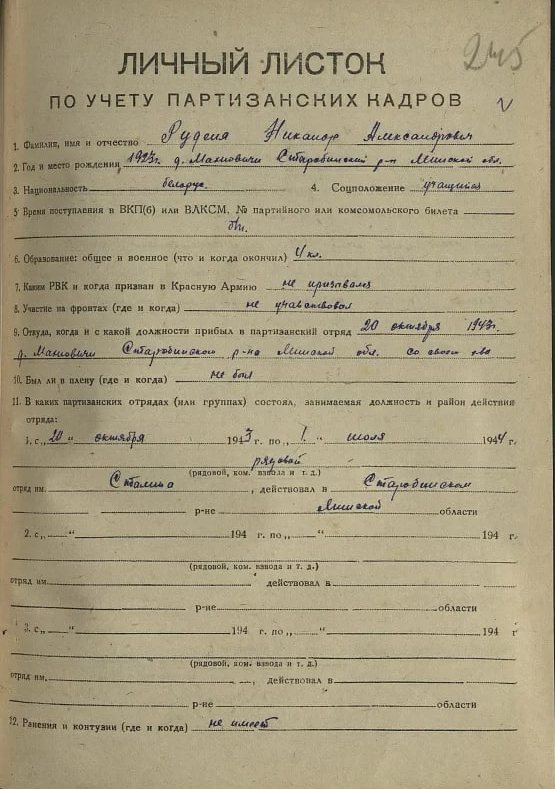 245
ЛИЧНЫЙ ЛИСТОК
ПО УЧЕТУ ПАРТИЗАНСКИХ КАДРОВ
1. Фамилия, имя и отчество Руденя Никанор Александрович
2. Год и место рождения 1923г. д. Маховичи Старобинский р-н Минской обл.
3. Национальность беларус. 4. Соцположение учащийся
5 Время поступления в ВКП(б) или ВЛКСМ, № партийного или комсомольского билета
б/п.
6. Образование: общее и военное (что и когда окончил) 4 кл.
7. Каким РВК и когда призван в Красную Армию не призывался
8. Участие на фронтах (где и когда) не участвовал
9. Откуда, когда и с какой должности прибыл в партизанский отряд 20 октября 1943г.
Маховичи Старобинского р-на Минской обл. со своего
10. Был ли в плену (где и когда) не был
11. В каких партизанских отрядах (или группах) состоял, занимаемая должность и район действия
отряда:
1. с „20“ октября 1943 г. по „1“ июля 1944 г.
рядовой
(рядовой, ком. взвода и т. д.)
отряд им. Сталина, действовал в Старобинском
р-не Минской области
2. с „ “ 194 г. по „ “ 194 г.
(рядовой, ком. взвода и т. д.)
отряд им. действовал в
р-не области
3. с „ “ 194 г. по „ “ 194 г
(рядовой, ком. взвода и т. д.)
отряд им. , действовал в
р-не области
12. Ранения и контузии (где и когда) не имеет